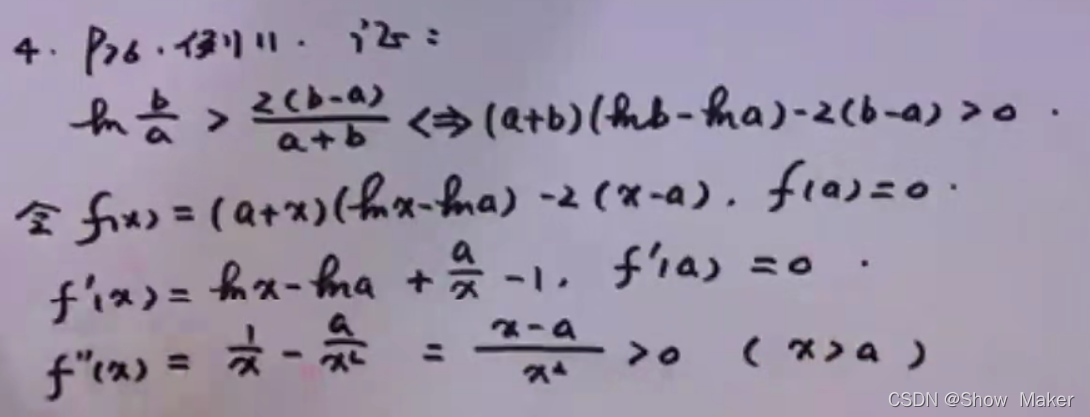 4. P76. 例11. 证:
ln b/a > 2(b-a)/(a+b) <=> (a+b)(lnb-lna)-2(b-a)>0.
令 f(x) = (a+x)(lnx-lna) -2(x-a). f(a)=0.
f'(x) = lnx-lna + a/x -1. f'(a) =0.
f''(x) = 1/x - a/x² = (x-a)/x² >0 (x>a)
CSDN @Show_Maker